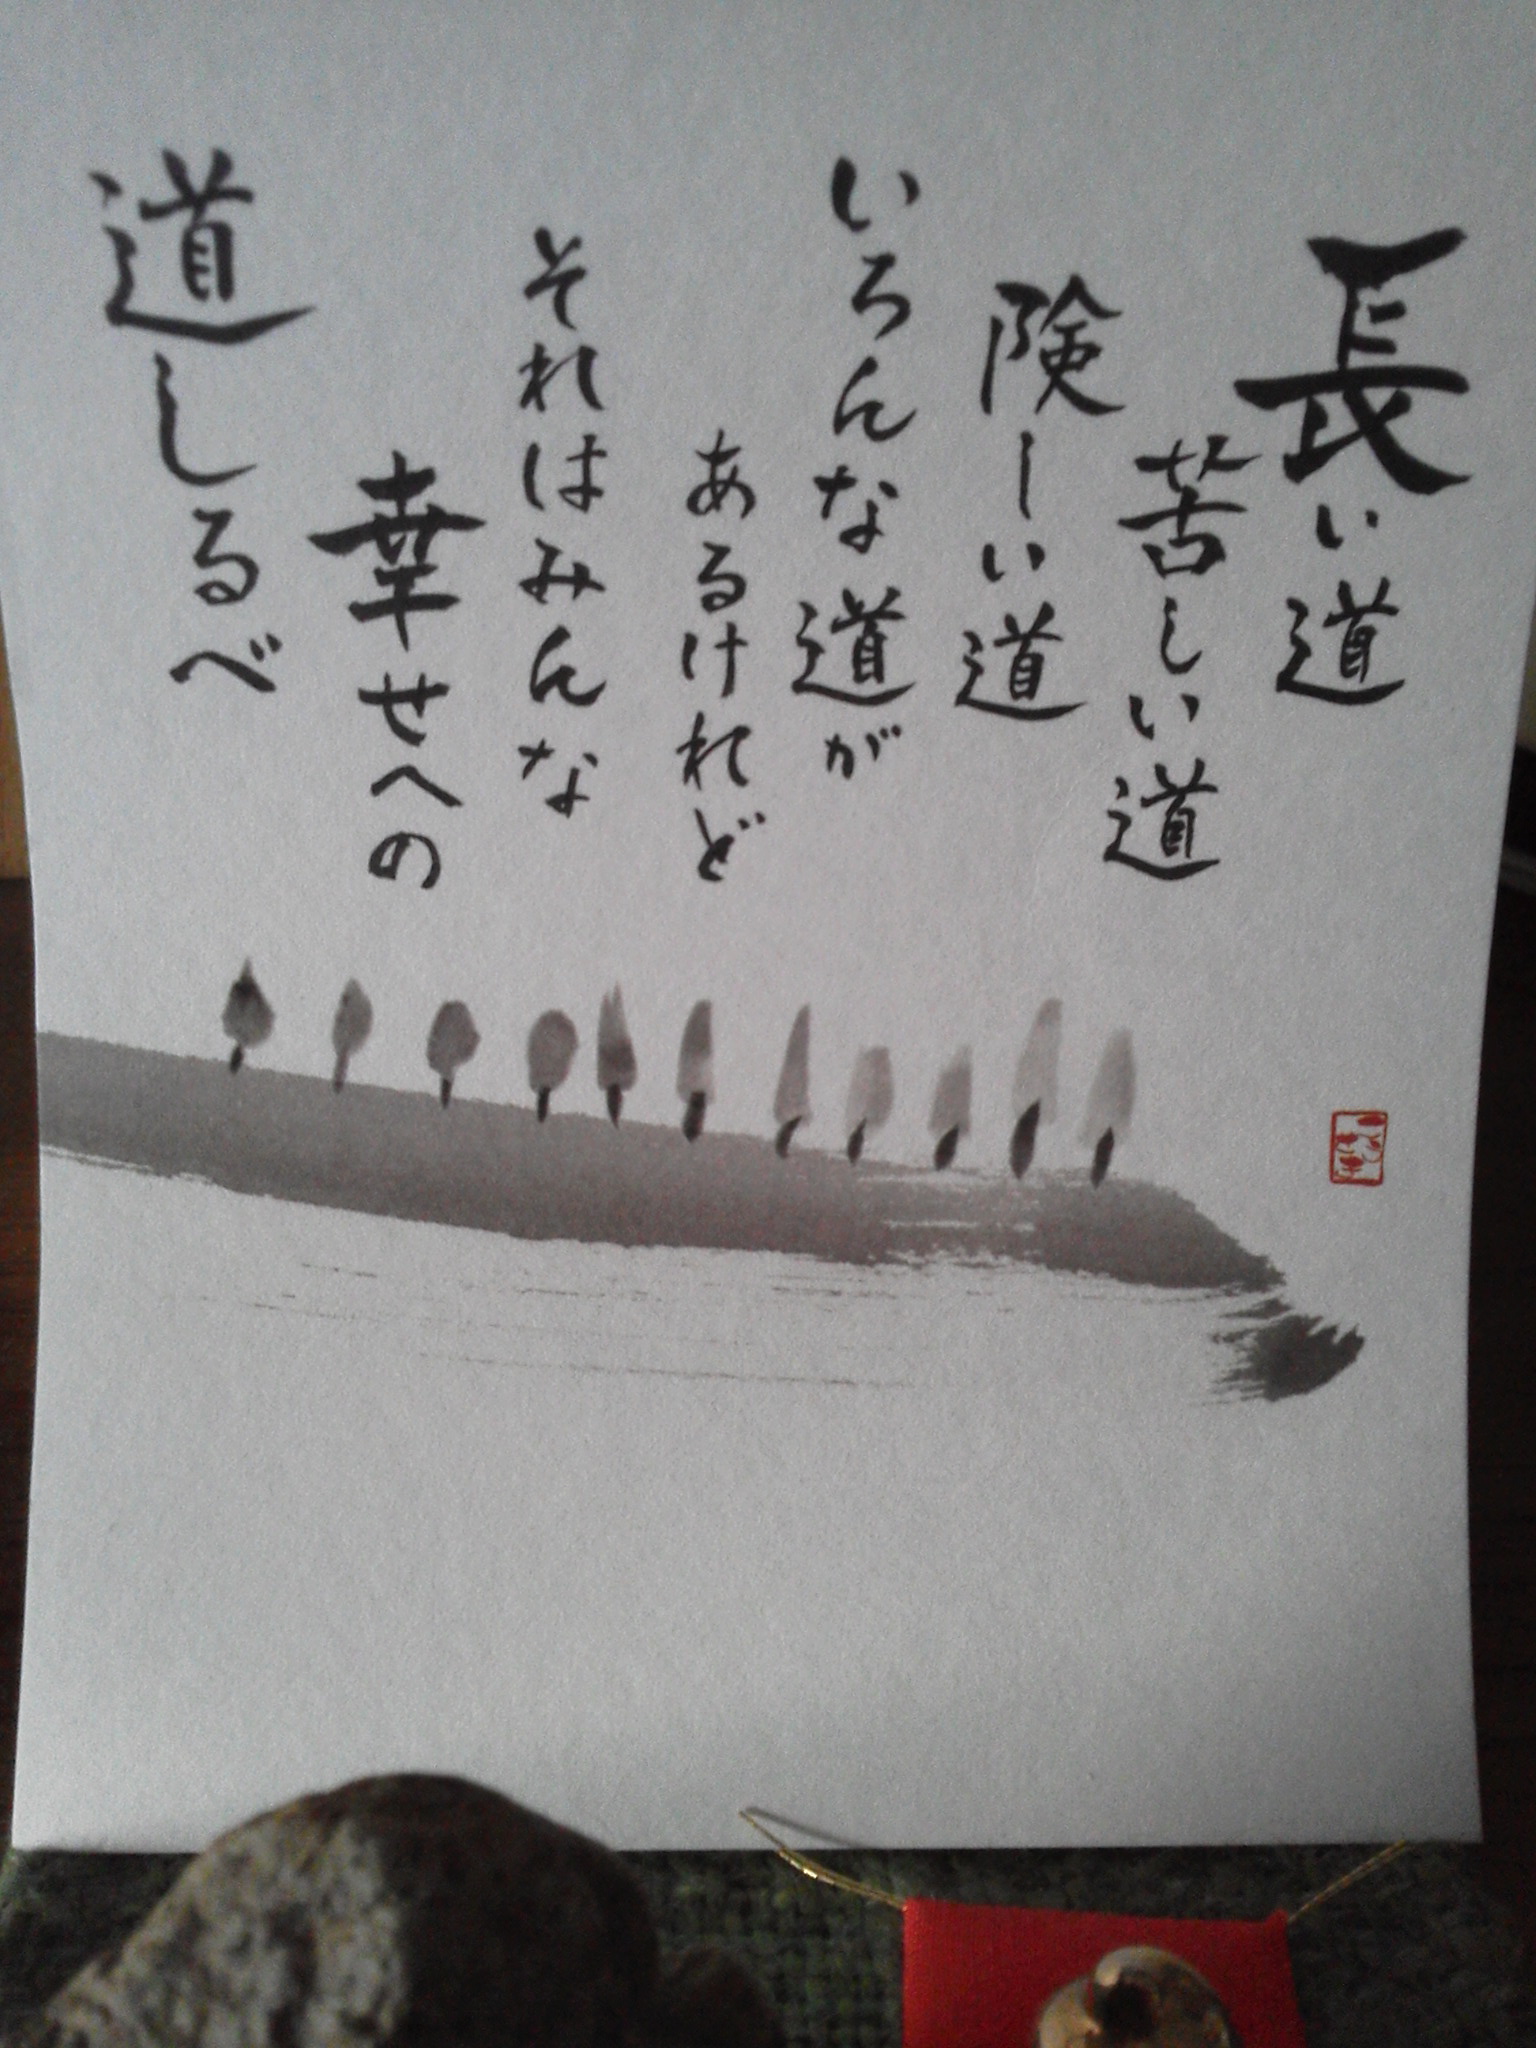 長い道
苦しい道
険しい道
いろんな道が
あるけれど
それはみんな
幸せへの
道しるべ